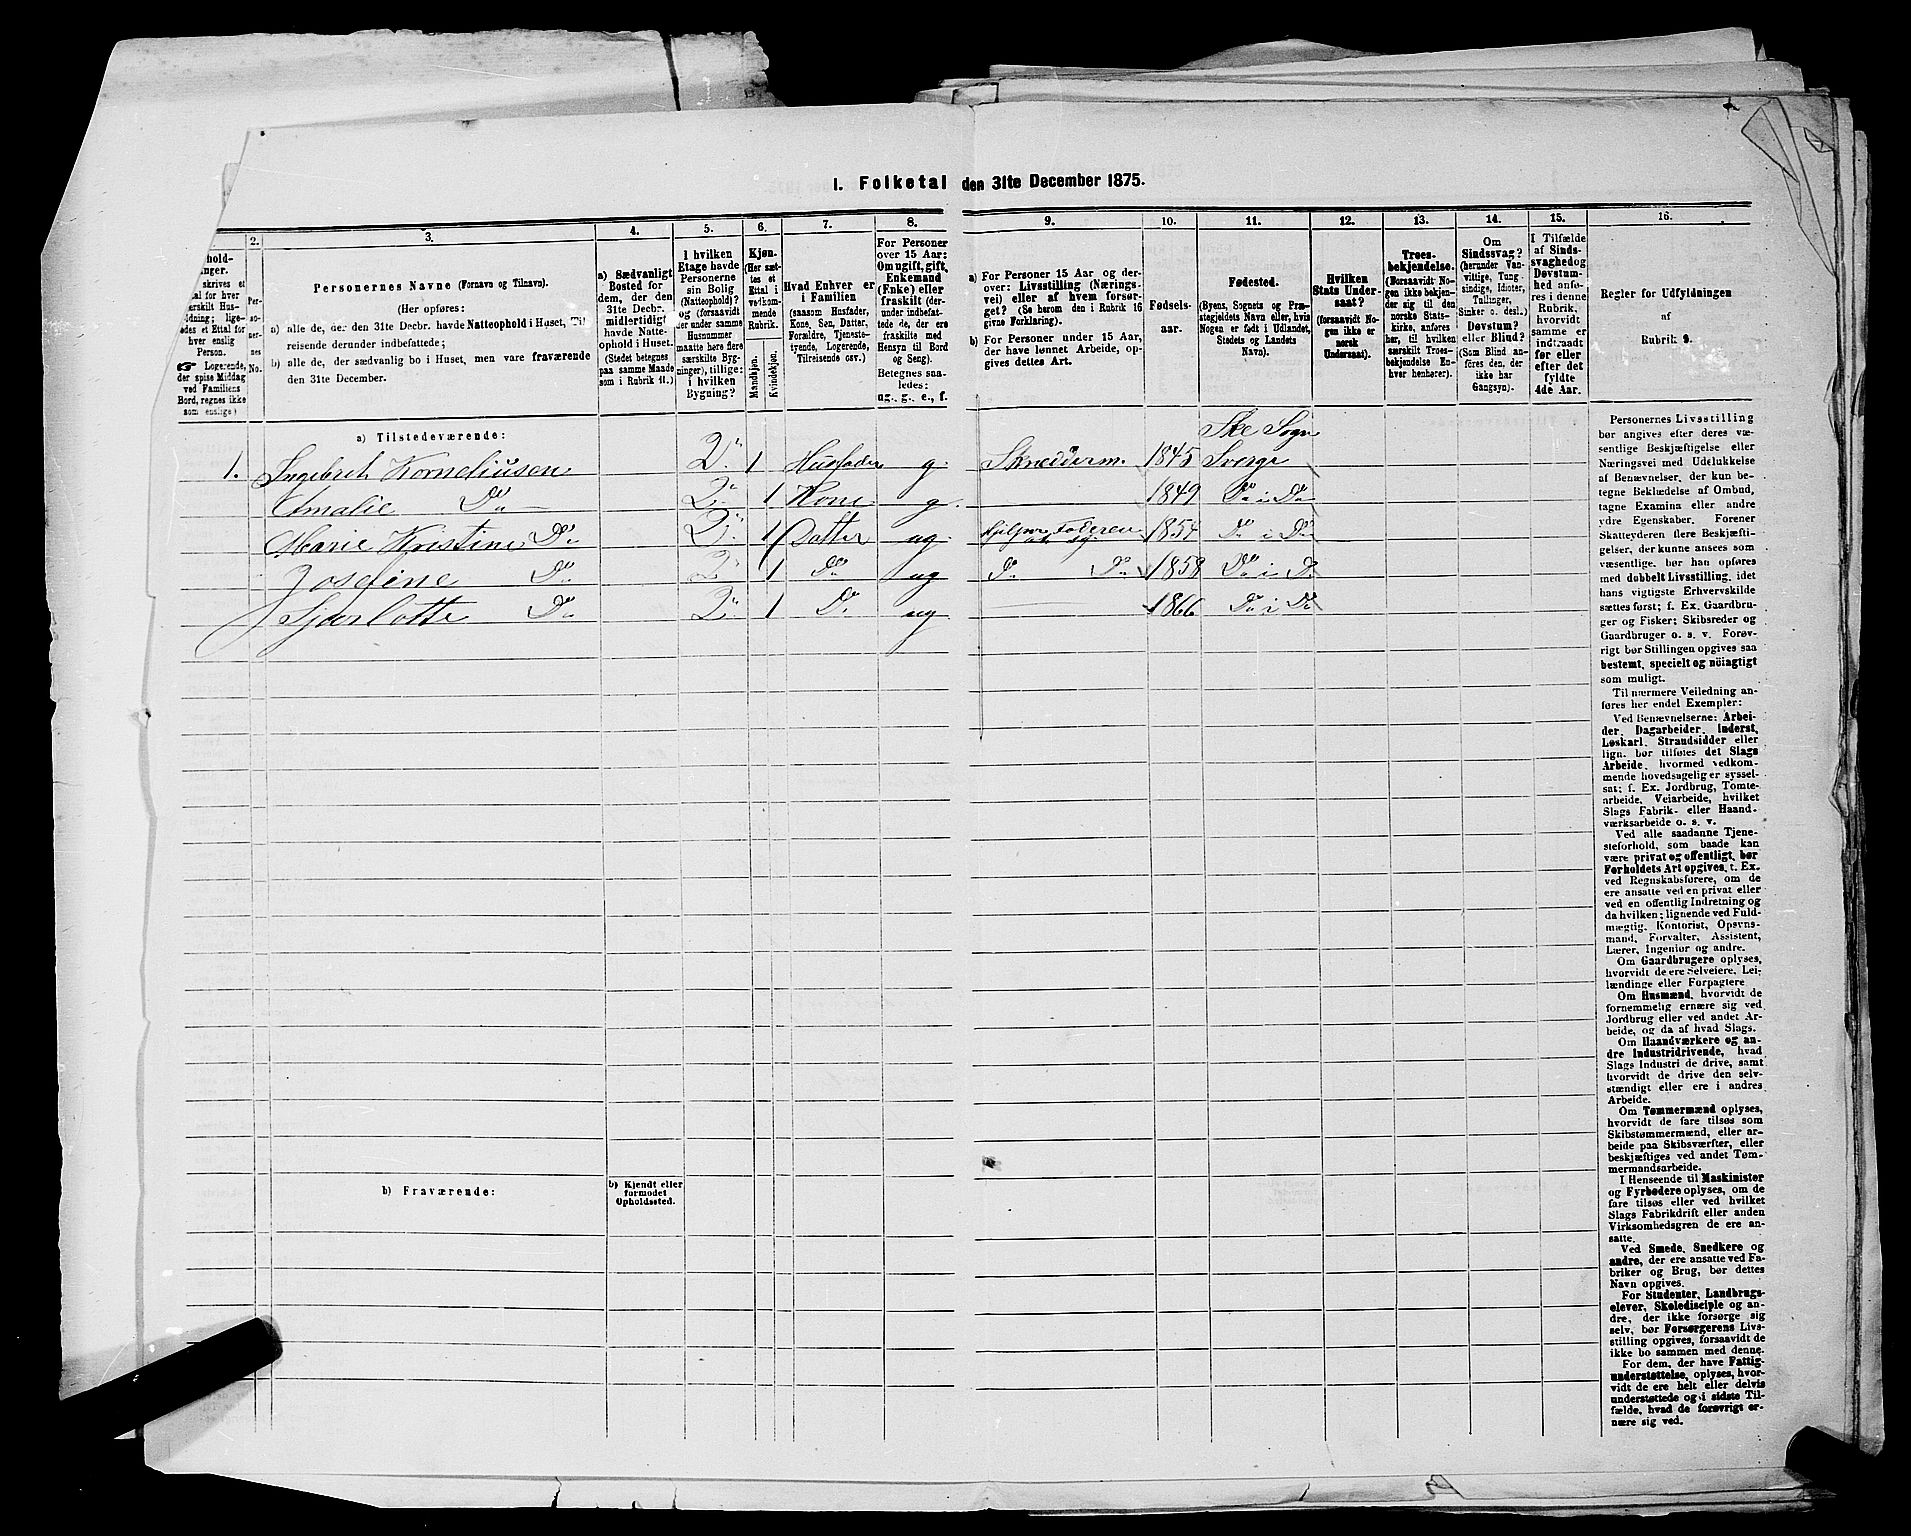 I. Folketal den 31te December 1875.
2.
3.
4.
5.
6.
7.
8.
9.
10.
11.
12.
13.
14.
15.
16.
hold-
nger.
skrives et
tal for hver
erskilt Hus-
ldning; lige-
ledes et Ettal for
hver enslig
Person.
Logerende,
der spise Middag
ved Familiens
Bord, regnes ikke
som enslige)
Per-
so-
ner-
nes
No.
Personernes Navne (Fornavn og Tilnavn).
(Her opføres:
a) alle de, der den 31te Decbr. havde Natteophold i Huset, Til
reisende derunder indbefattede;
b) alle de, der sædvanlig bo i Huset, men vare fraværende
den 31te December.
a) Sædvanligt
Bosted for
dem, der den
31te Decbr.
midlertidigt
havde Natte-
ophold i Huset.
(Stedet betegnes
paa samme Maade
som i Rubrik 11.)
I hvilken
Etage havde
Personerne
sin Bolig
(Natteophold)?
og (forsaavidt
der under samme
Husnummer
maatte høre flere
særskilte Byg-
ninger), tillige:
i hvilken
Bygning?
Kjøn.
(Her sæt-
tes et
Ettal i
vedkom-
mende
Rubrik.
Mandkjøn.
Kvindekjøn.
Hvad Enhver er
i Familien
(saasom Husfader,
Kone, Søn, Datter,
Forældre, Tjeneste-
tyende, Logerende,
Tilreisende osv.)
For Personer
over 15 Aar:
Om ugift, gift,
Enkemand
(Enke) eller
fraskilt (der-
under indbefat-
tede de, der ere
fraskilte med
Hensyn til Bord
og Seng).
Betegnes saa-
ledes:
ug., g., e., f.
a) For Personer 15 Aar og der-
over: Livsstilling (Næring-
vei) eller af hvem forsør-
get? (Se herom den i Rubrik 16
givne Forklaring).
b) For Personer under 15 Aar,
der have lønnet Arbeide, op-
gives dettes Art.
Fødsels-
aar.
Fødested.
(Byens, Sognets og Præ-
stegjeldets Navn eller, hvis
Nogen er født i Udlandet,
Stedets og Landets
Navn).
Hvilken
Stats Under-
saat?
(forsaavidt No-
gen ikke er
norsk
Undersaat).
Troes-
bekjendelse.
(Forsaavidt No-
gen ikke bekjen-
der sig til den
norske Stats-
kirke, anføres
her, til hvilken
særskilt Troes-
bekjendelse En-
hver henhører).
Om
Sindssvag?
(herunder Van-
vittige, Tung-
sindige, Idioter,
Tullinger,
Sinker o. desl.)
Døvstum?
eller Blind?
(Som Blind an-
føres den, der
ikke har
Gangsyn).
I Tilfælde
af Sinds-
svaghed og
Døvstum-
hed anfø-
res i denne
Rubrik,
hvorvidt
samme er
indtraadt
før eller
efter det
fyldte
4de Aar.
Regler for Udfyldningen
af
Rubrik 9.
a) Tilstedeværende:
Ske Sogn
1. Ingebret Korneliusen 2" 1 Husfader g. Skræderm. 1845 Sverge
Amalie Do 2" 1 Kone g. 1849 Do i Do
Marie Kristine Do 2" 1 Datter ug. Hjelper Faderen 1854 Do i Do
Josefine Do 2" 1 Do ug Do Do 1858 Do i Do
Sjarlotte Do 2" 1 Do ug 1866 Do i Do
b) Fraværende:
b) Kjendt eller
formodet
Opholdssted.
Personernes Livsstilling
bør angives efter deres væ-
sentlige Beskjæftigelse eller
Næringsvei med Udelukkelse
af Benævnelser, der kun be-
tegne Beklædelse af Ombud,
tagne Examina eller andre
ydre Egenskaber. Forener
Skatteyderen flere Beskjæfti-
gelser, der kunne ansees som
væsentlige, bør han opføres
med dobbelt Livsstilling, idet
hans vigtigste Erhvervskilde
sættes først; f. Ex. Gaardbru-
ger og Fisker; Skibsreder og
Gaardbruger o. s. v. Forøv-
rigt bør Stillingen opgives saa
bestemt, specielt og nöiagtigt
som muligt.
Til nærmere Veiledning an-
føres her endel Exempler:
Ved Benævnelserne: Arbei-
der, Dagarbeider, Inderst,
Løskarl, Strandsidder eller
lign. bør tilføies det Slags
Arbeide, hvormed vedkom-
mende hovedsagelig er syssel-
sat; f. Ex. Jordbrug, Tomte-
arbeide, Veiarbeide, hvilket
Slags Fabrik- eller Haand-
værksarbeide o. s. v.
Ved alle saadanne Tjene-
steforhold, som baade kan
være privat og offentligt, bør
Forholdets Art opgives, t. Ex.
ved Regnskabsførere, om de
ere ansatte ved en privat eller
ved en offentlig Indretning og
da hvilken; lignende ved Fuld-
mægtig, Kontorist, Opsyns-
mand, Forvalter, Assistent,
Lærer, Ingeniør og andre.
Om Gaardbrugere oplyses,
hvorvidt de ere Selveiere, Lei-
lændinge eller Forpagtere.
Om Husmænd, hvorvidt de
fornemmelig ernære sig ved
Jordbrug eller ved andet Ar-
beide, og da af hvad Slags.
Om Haandværkere og an-
dre Industridrivende, hvad
Slags Industri de drive, samt
hvorvidt de drive den selv-
stændigt eller ere i andres
Arbeide.
Om Tømmermænd oplyses,
hvorvidt de fare tilsøs som
Skibstømmermænd, eller ar-
beide paa Skibsværfter, eller
beskjæftiges ved andet Tøm-
mermandsarbeide.
I Henseende til Maskinister
og Fyrbødere oplyses, om de
fare tilsøs eller ved hvilket
Slags Fabrikdrift eller anden
Virksomhedsgren de ere an-
satte.
Ved Smede, Snedkere og
andre, der ere ansatte ved Fa-
briker og Brug, bør dettes
Navn opgives.
For Studenter, Landbrugs-
elever, Skoledisciple og an-
dre, der ikke forsørge sig
selv, bør Forsørgerens Livs-
stilling opgives, forsaavidt de
ikke bo sammen med denne.
For dem, der have Fattig-
understøttelse, oplyses, hvor-
vidt de ere helt eller delvis
understøttede og i sidste Til-
fælde, hvad de forøvrigt er-
nære sig ved.